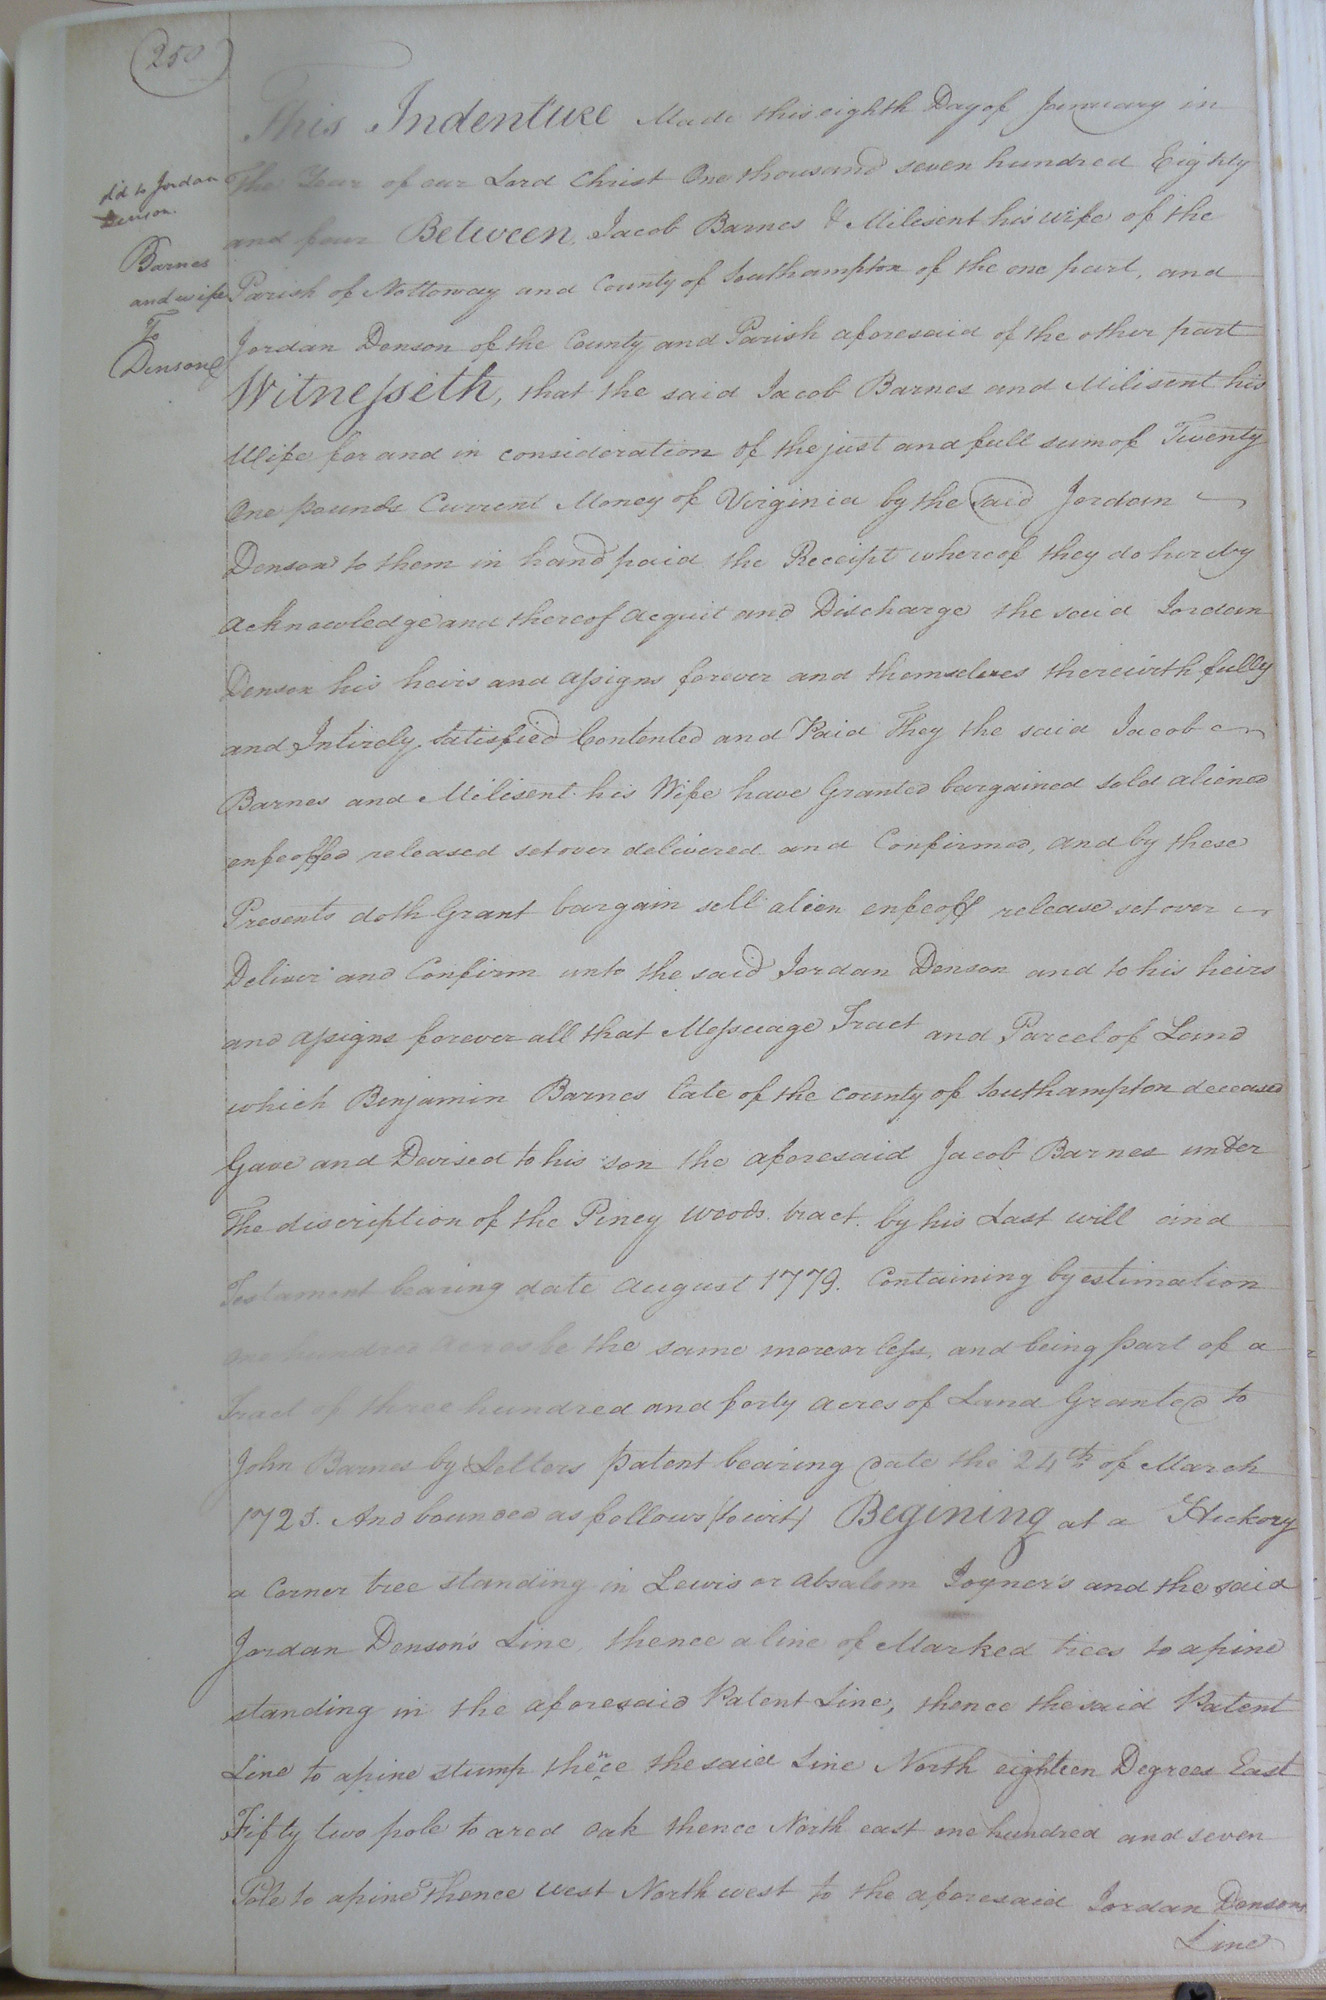 250
This Indenture Made this eighth Day of January in
The Year of our Lord Christ One thousand seven hundred Eighty
and four Between Jacob Barnes & Milisent his wife of the
Parish of Nottoway and County of Southampton of the one part, and
Jordan Denson of the County and Parish aforesaid of the other part
Witnesseth, that the said Jacob Barnes and Milisent his
Wife for and in consideration of the just and full sum of Twenty
One pounds Current Money of Virginia by the said Jordan
Denson to them in hand paid the Receipt whereof they do hereby
acknowledge and thereof acquit and Discharge the said Jordan
Denson his heirs and assigns forever and themselves therewith fully
and Intirely satisfied Contented and Paid They the said Jacob
Barnes and Milisent his Wife have Granted bargained sold aliened
enfeoffed released setover delivered and Confirmed, and by these
Presents doth Grant bargain sell alien enfeoff release setover
Deliver and Confirm unto the said Jordan Denson and to his heirs
and assigns forever all that Messuage Tract and Parcel of Land
which Benjamin Barnes late of the County of Southampton deceased
Gave and Devised to his son the aforesaid Jacob Barnes under
The discription of the Piney woods tract by his Last will and
Testament bearing date August 1779. Containing by estimation
One hundred acres be the same more or less, and being part of a
Tract of three hundred and forty acres of Land Granted to
John Barnes by Letters patent bearing date the 24th of March
1725. And bounded as follows (towit) Begining at a Hickory
a Corner tree standing in Lewis or Absalom Joyner's and the said
Jordan Denson's Line thence a line of Marked trees to a pine
standing in the aforesaid Patent Line, thence the said Patent
Line to a pine stump thence the said Line North eighteen Degrees East
Fifty two pole to a red oak thence North east one hundred and seven
Pole to a pine Thence West North west to the aforesaid Jordan Densons
Line
dd to Jordan
Denson.
Barnes
and wife
To
Denson